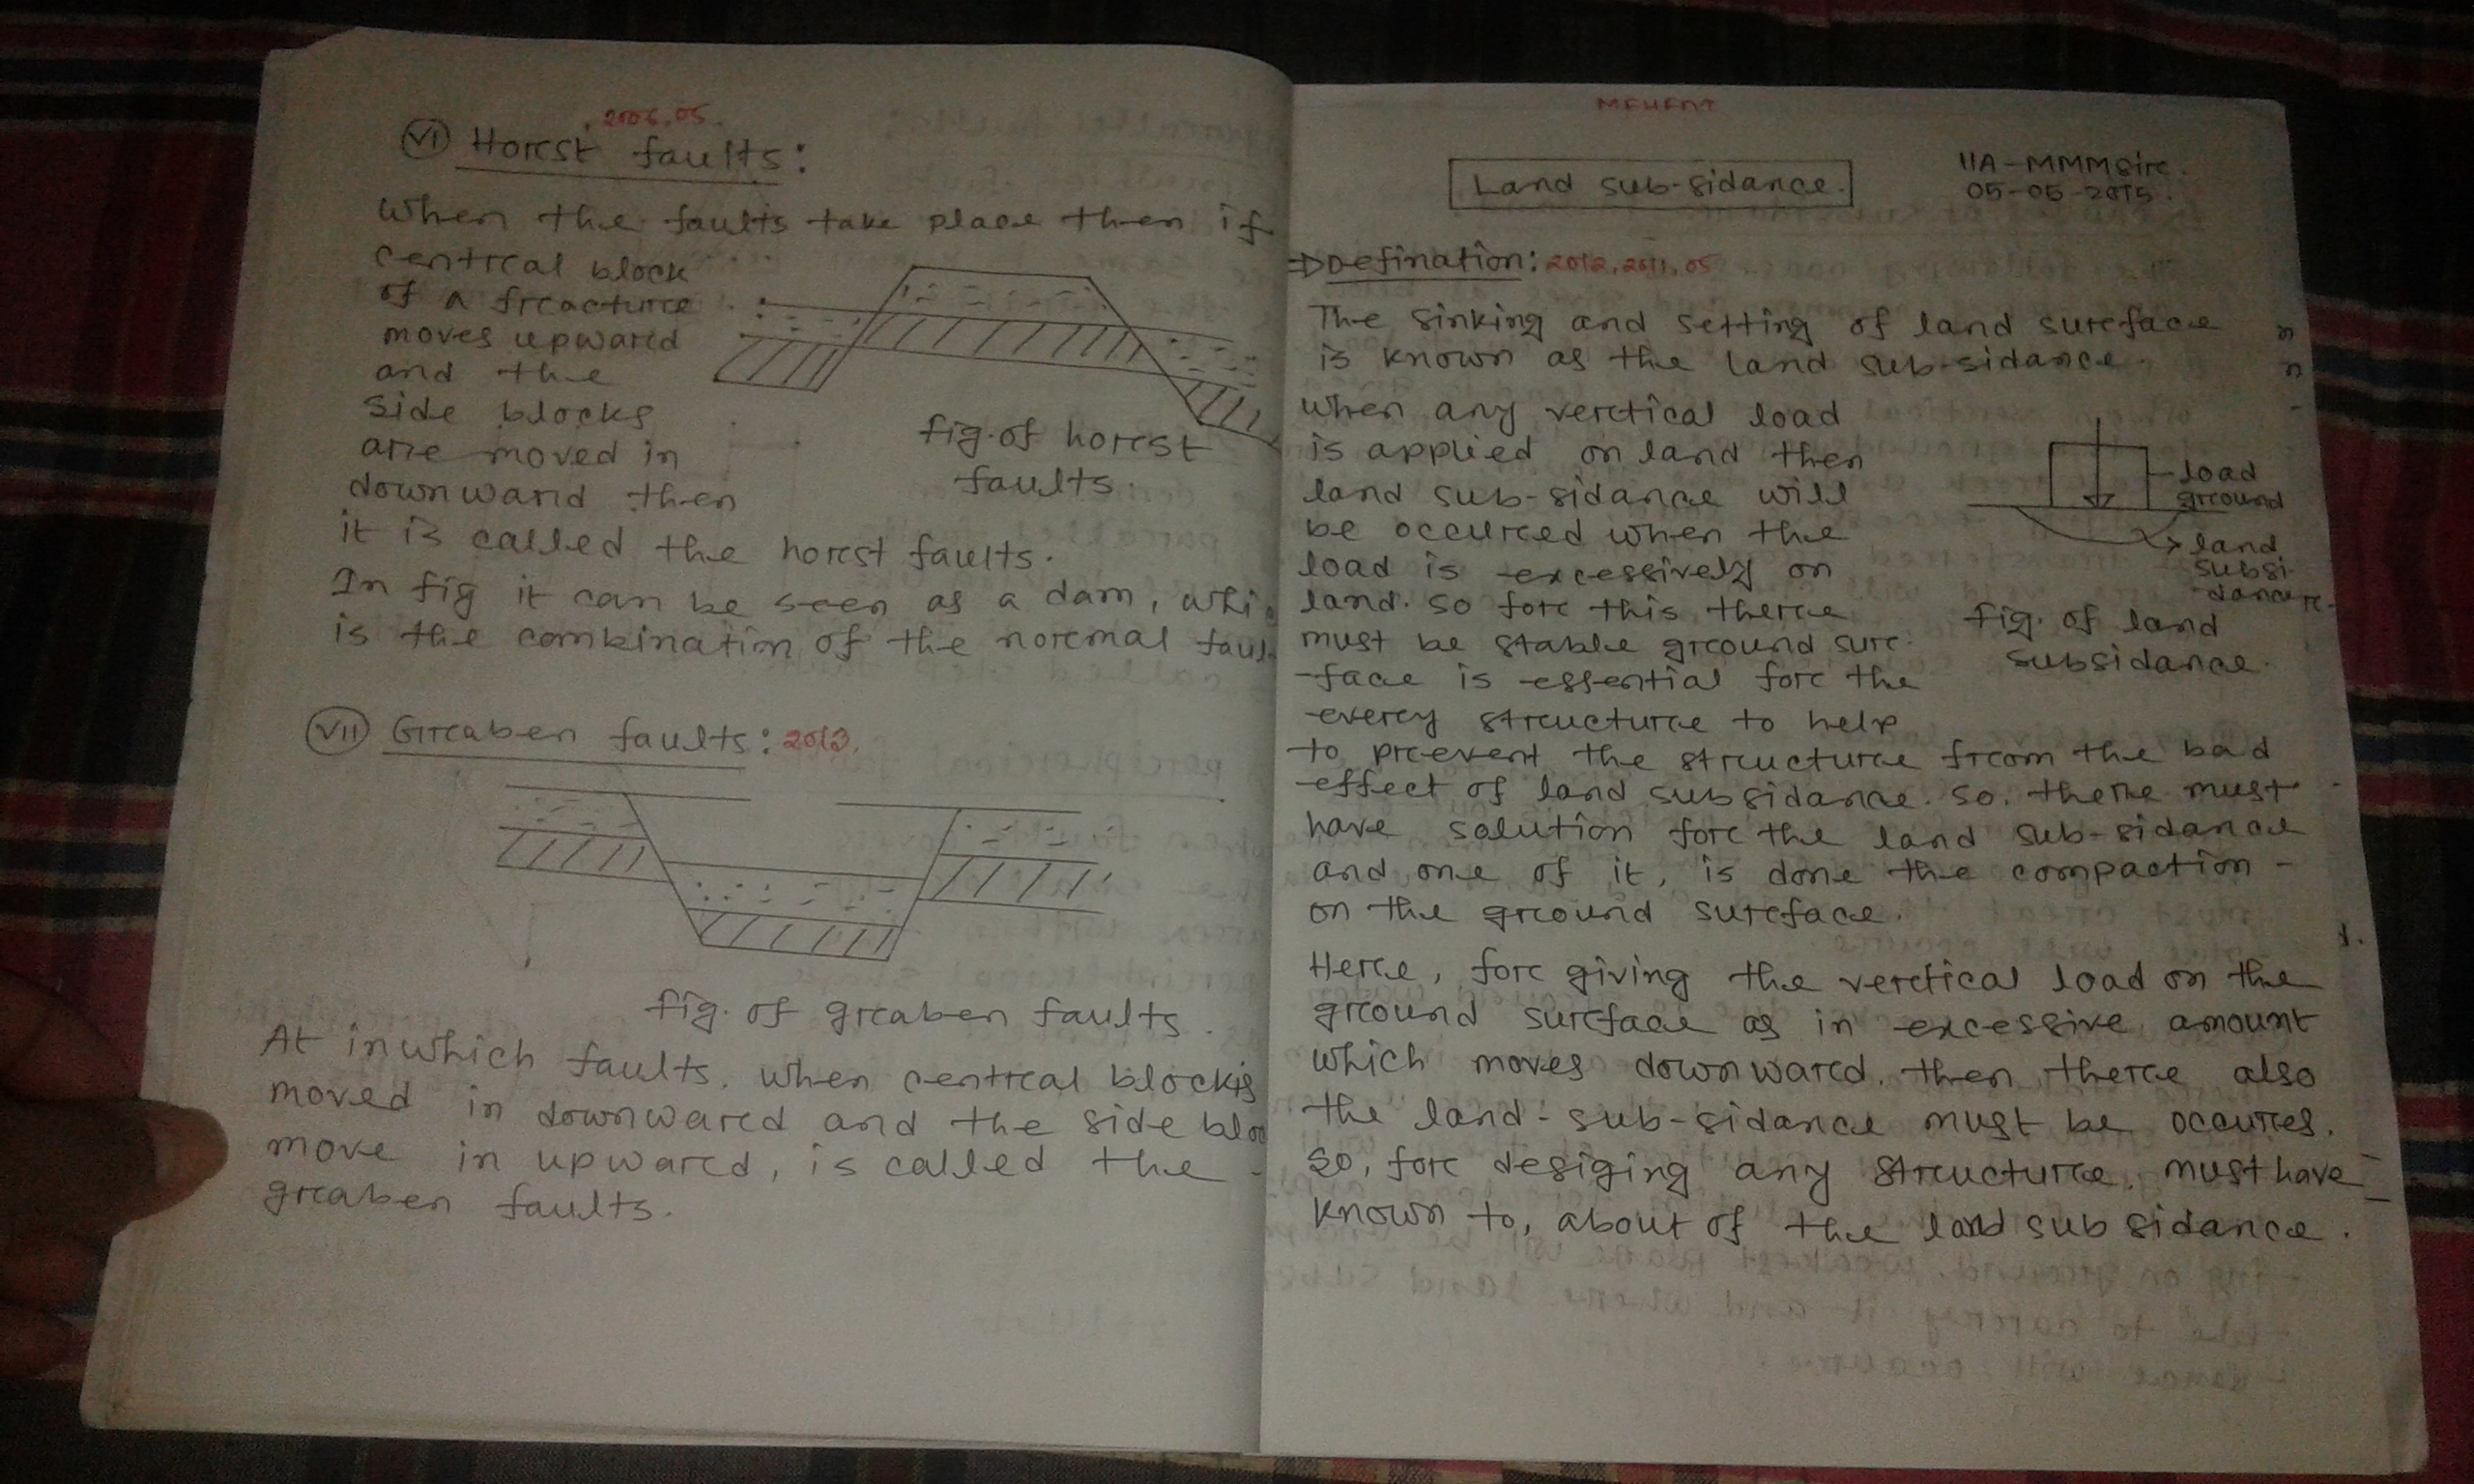 2006, 05.
VI Horst faults:
When the faults take place then if
central block
of a fracture
moves upward
and the
side blocks
are moved in
downward then
it is called the horst faults.
fig. of horst
faults.
In fig it can be seen as a dam, whi
is the combination of the normal faul
VII Graben faults: 2013.
fig. of graben faults.
At in which faults, when central block is
moved in downward and the side blo
move in upward, is called the
graben faults.
Land sub-sidance.
11A-MMMsir.
05-05-2015.
⇒ Defination: 2012, 2011, 05
The sinking and setting of land surface
is known as the land sub-sidance.
When any vertical load
is applied on land then
land sub-sidance will
be occured when the
load is excessively on
land. so for this there
must be stable ground sur-
-face is essential for the
every structure to help
to prevent the structure from the bad
effect of land subsidance. so. there must
have solution for the land sub-sidance
and one of it, is done the compaction -
on the ground surface.
load
ground
land
subsi-
-dance
fig. of land
subsidance.
Here, for giving the vertical load on the
ground surface as in excessive amount
which moves downward. then there also
the land-sub-sidance must be occures.
so, for desiging any structure. must have
known to, about of the land sub sidance.